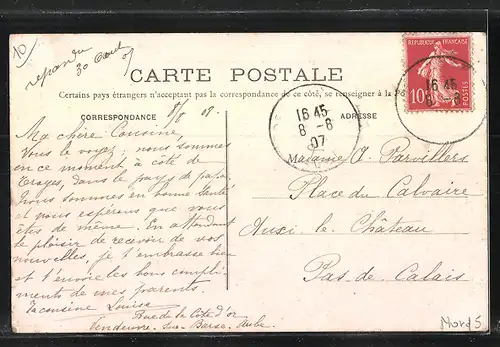 10
répondu
30 Août 07
CARTE POSTALE
Certains pays étrangers n'acceptent pas la correspondance de ce côté, se renseigner à la
CORRESPONDANCE
ADRESSE
8/8 08.
Ma chère Cousine,
Vous le voyez; nous sommes
en ce moment à côté de
Troyes, dans le pays de papa.
Nous sommes en bonne santé
et nous espérons que vous
êtes de même. En attendant
le plaisir de recevoir de vos
nouvelles, je t'embrasse bien
et t'envoie les bons compli-
ments de mes parents.
Ta cousine Louise
Rue de la Côte d'or
Vendeuvre-sur-Barse, Aube
16 45
8 - 8
07
RÉPUBLIQUE FRANÇAISE
10
POSTES
16 45
8 - 8
Madame J. Parvillers
Place du Calvaire
Auxi le Château
Pas de Calais
Nord 5